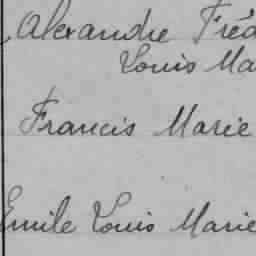 Alexandre Fréd
Louis Ma
Francis Marie
Emile Louis Marie